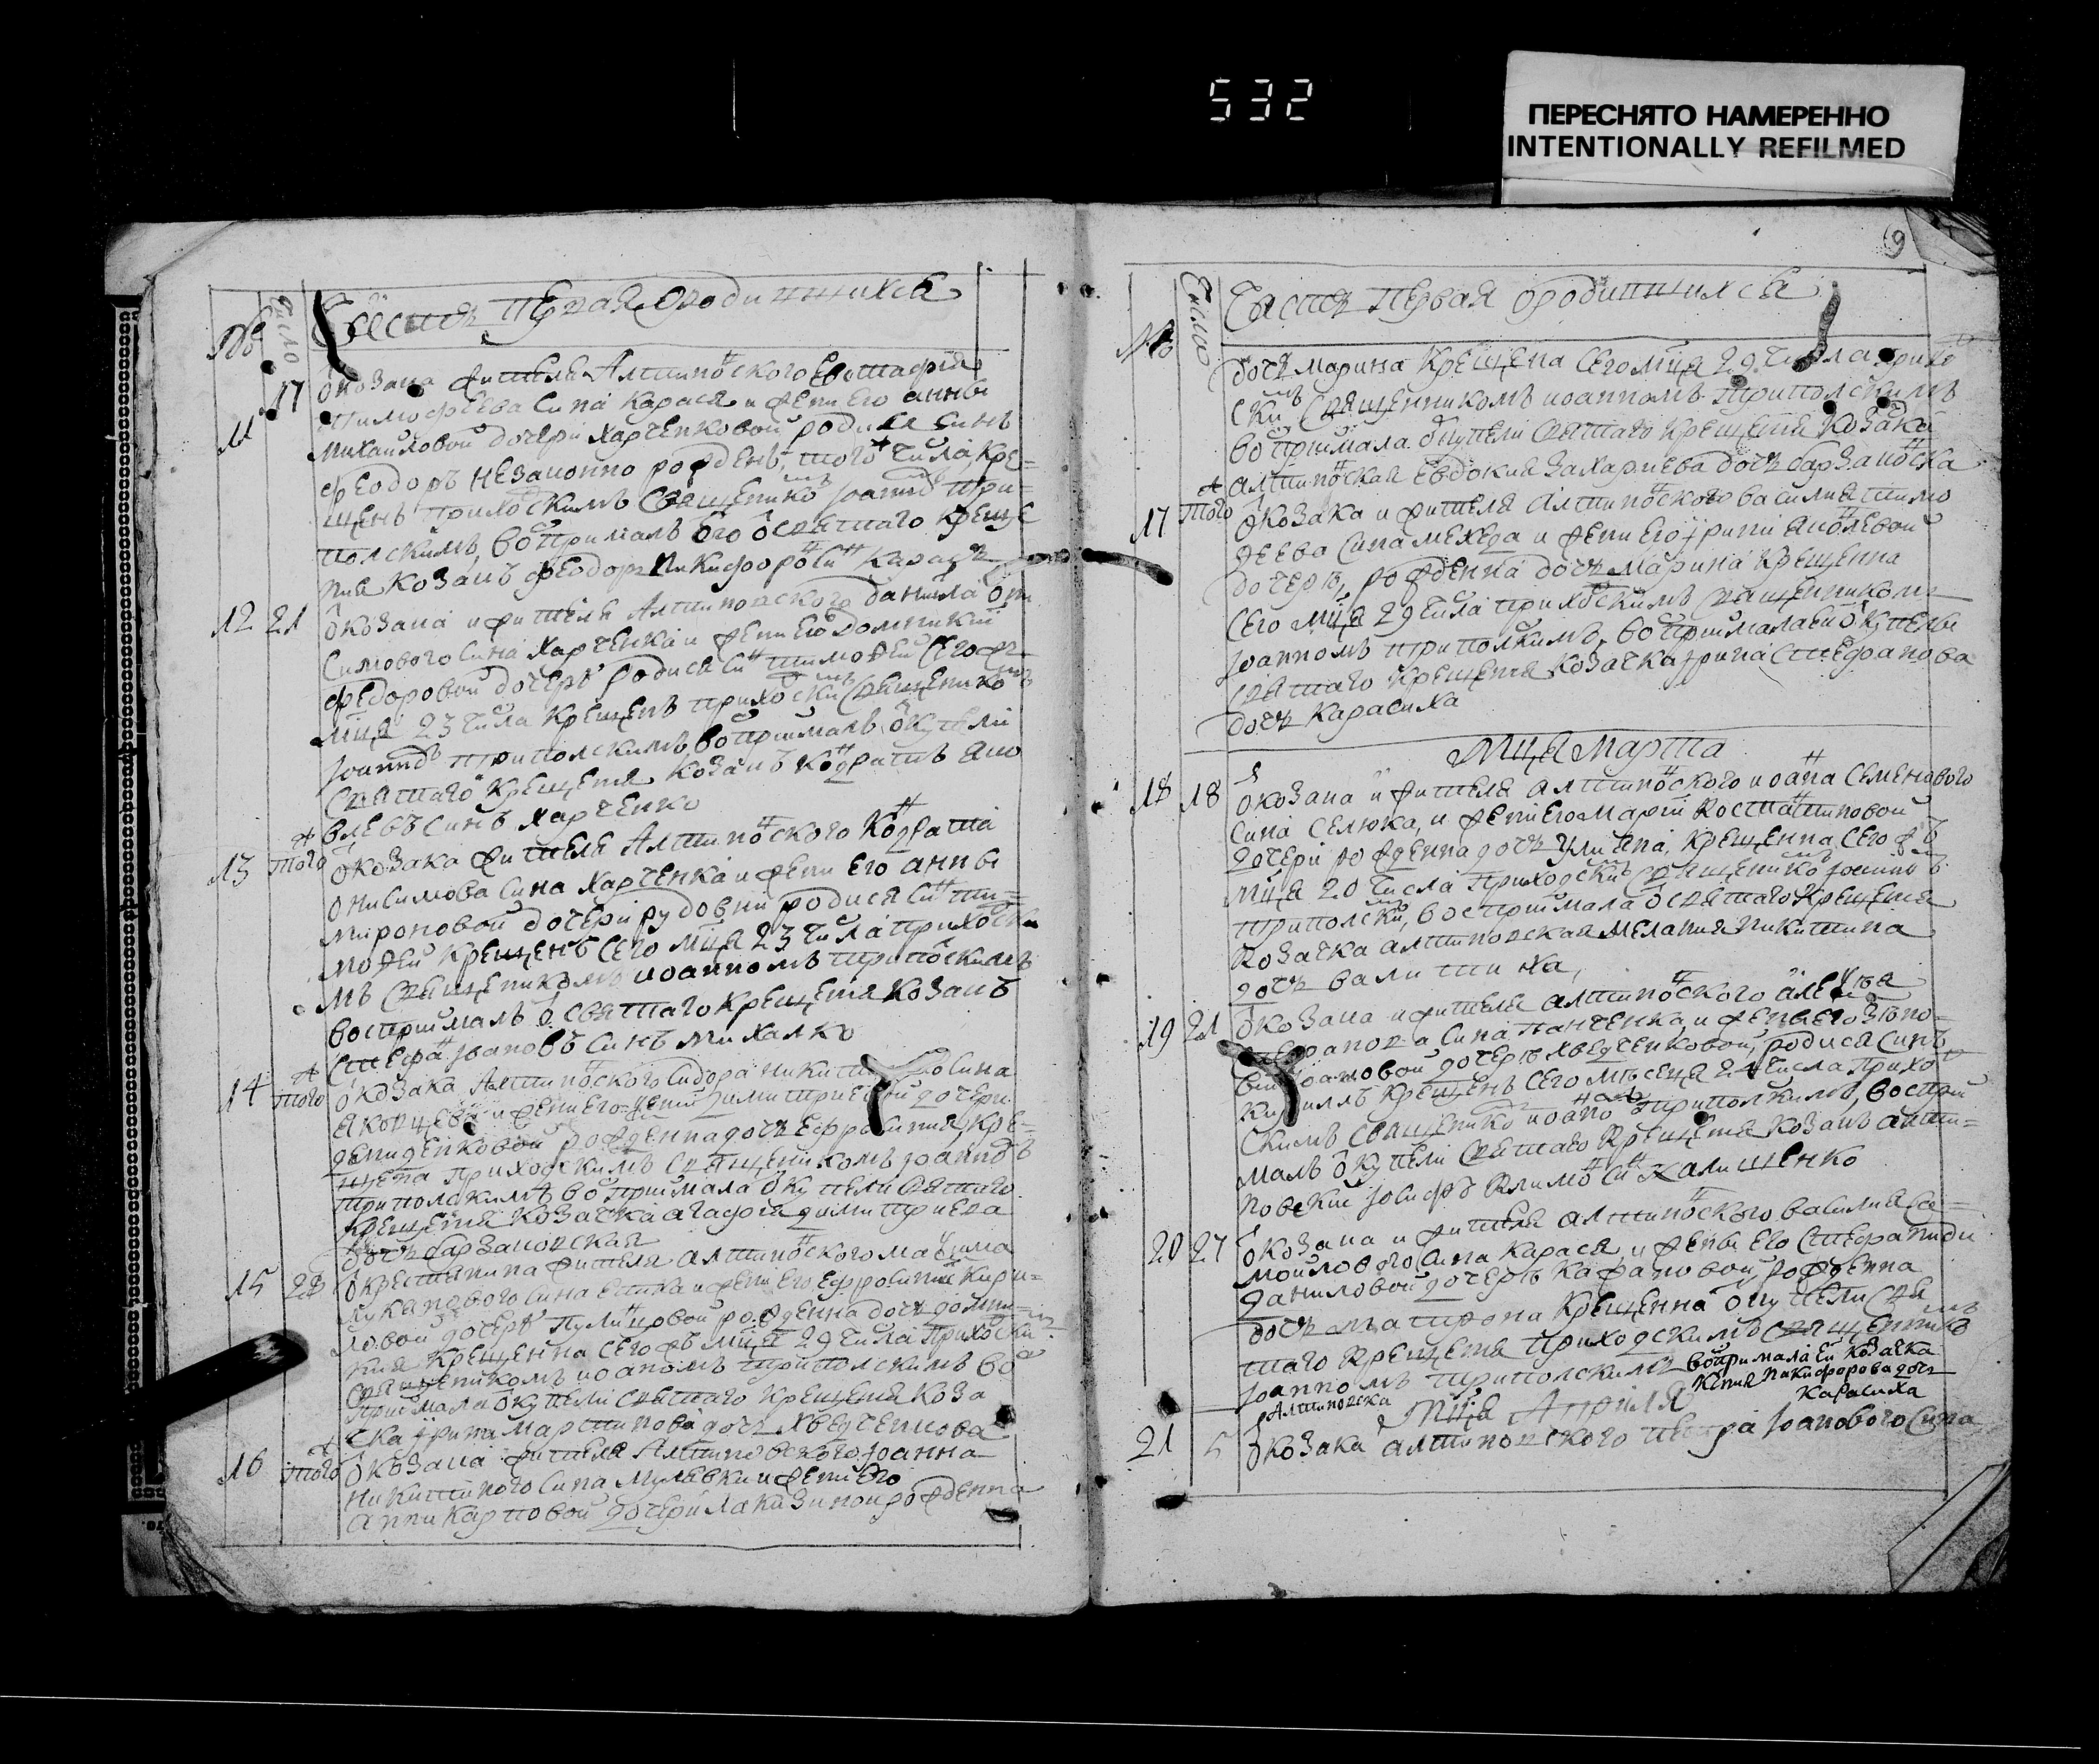 532
ПЕРЕСНЯТО НАМЕРЕННО
INTENTIONALLY REFILMED
№ Число Часть первая о родившихся
11 17 козака жителя Алтиновского Евстафия
Тимофеева сина Карася и жени его анны
Михайловой дочери Харченковой родися синъ
феодоръ незаконно рожденъ, того числа, кре=
щенъ приходскимъ священико Iоанномъ три=
полскимъ, воспрималъ его о святаго креще
ния козакъ феодоръ Никифоровъ синъ Карась
12 21 козака и жителя Алтиновского данила они
симового сина Харченка и жени его домникии
федоровой дочере родися синъ тимофей сего ж
мца 23 числа крещенъ приходски священико
Iоанно триполскимъ, воспрималъ о купели
святаго крещения козакъ кодратъ яко
влевъ синъ Харченко
13 того козака жителя Алтиновского Кодрата
онисимова сина Харченка и жени его анны
мироновой дочери рудовни родися синъ ти=
мофей крещенъ сего мця 23 числа приходски
мъ священикомъ иоанномъ триполскимъ
воспрималъ о святаго крещения козакъ
Стефа Iвановъ синъ михалко
14 того козака Алтиновского Сидора никити сина
жени его димитриевой дочери
демиденковой рожденна дочь Ефросиния, кре=
щена приходскимъ священикомъ Iоанно
триполскимъ воспримала о купели святаго
крещения козачка агафия димитриева
дочь барзаковская
15 28 крестянина жителя алтиновского максима
лукянового сина и жени его ефросинии кири=
ловой дочере рожденна дочь домни=
кия крещенна сего жъ мця 29 числа приходски
священикомъ иоаномъ триполскимъ вос
примала о купели святаго крещения коза
чка Iрина мартинова дочь хведченкова
16 того козака жителя Алтиновского Iоанна
никитиного сина и жени его
анни карповой дочери рожденна
9
№ Число Часть первая о родившихся
дочь марина крещена сего мця 29 числа прихо
ски священникомъ иоанномъ триполскимъ
воспримала о купели святаго крещения козачка
алтиновская Евдокия Захариева дочь барзаковска
17 того козака и жителя алтиновского василия тимо
феева сина мехеда и жени его Iрини яковлевой
дочере, рожденна дочь марина крещенна
сего мця 29 числа приходскимъ священикомъ
Iоанномъ триполкимъ, воспримала ей о купели
святаго крещения козачка Iрина Стефанова
дочь Карасиха
Мця Марта
18 18 козака и жителя алтиновского иоана семенового
сина селюка, и жени его марии костатиновой
дочери рожденна дочь Улияна, крещенна сего ж
мця 20 числа приходски священико Iоанно
триполски, воспримала о святаго крещения
козачка алтиновская мелания никитина
дочь валитиха,
19 21 козака и жителя алтиновского алексея
Стефанова сина панченка, и жены его зѣно=
вии Iоановой дочерѣ хведченковой, родися синъ
кирилъ крещенъ сего мѣсеця 21 числа прихо
скимъ священико иоано триполкимъ, воспри
малъ о купели святаго крещения козакъ алти=
новский Iосифъ климовъ синъ калишенко
20 27 козака и жителя алтиновского василия са=
мойлового сина Карася, и жены его Стефаниди
даниловой дочерѣ кафановой, рожденна
дочь матрона крещенна о купели свя
таго крещения приходскимъ священико
Iоанномъ триполскимъ воспримала ей козачка
Алтиновска Ксеня Никифорова дочь
Карасиха
Мця Априля
21 5 козака алтиновского петра Iоанового сина